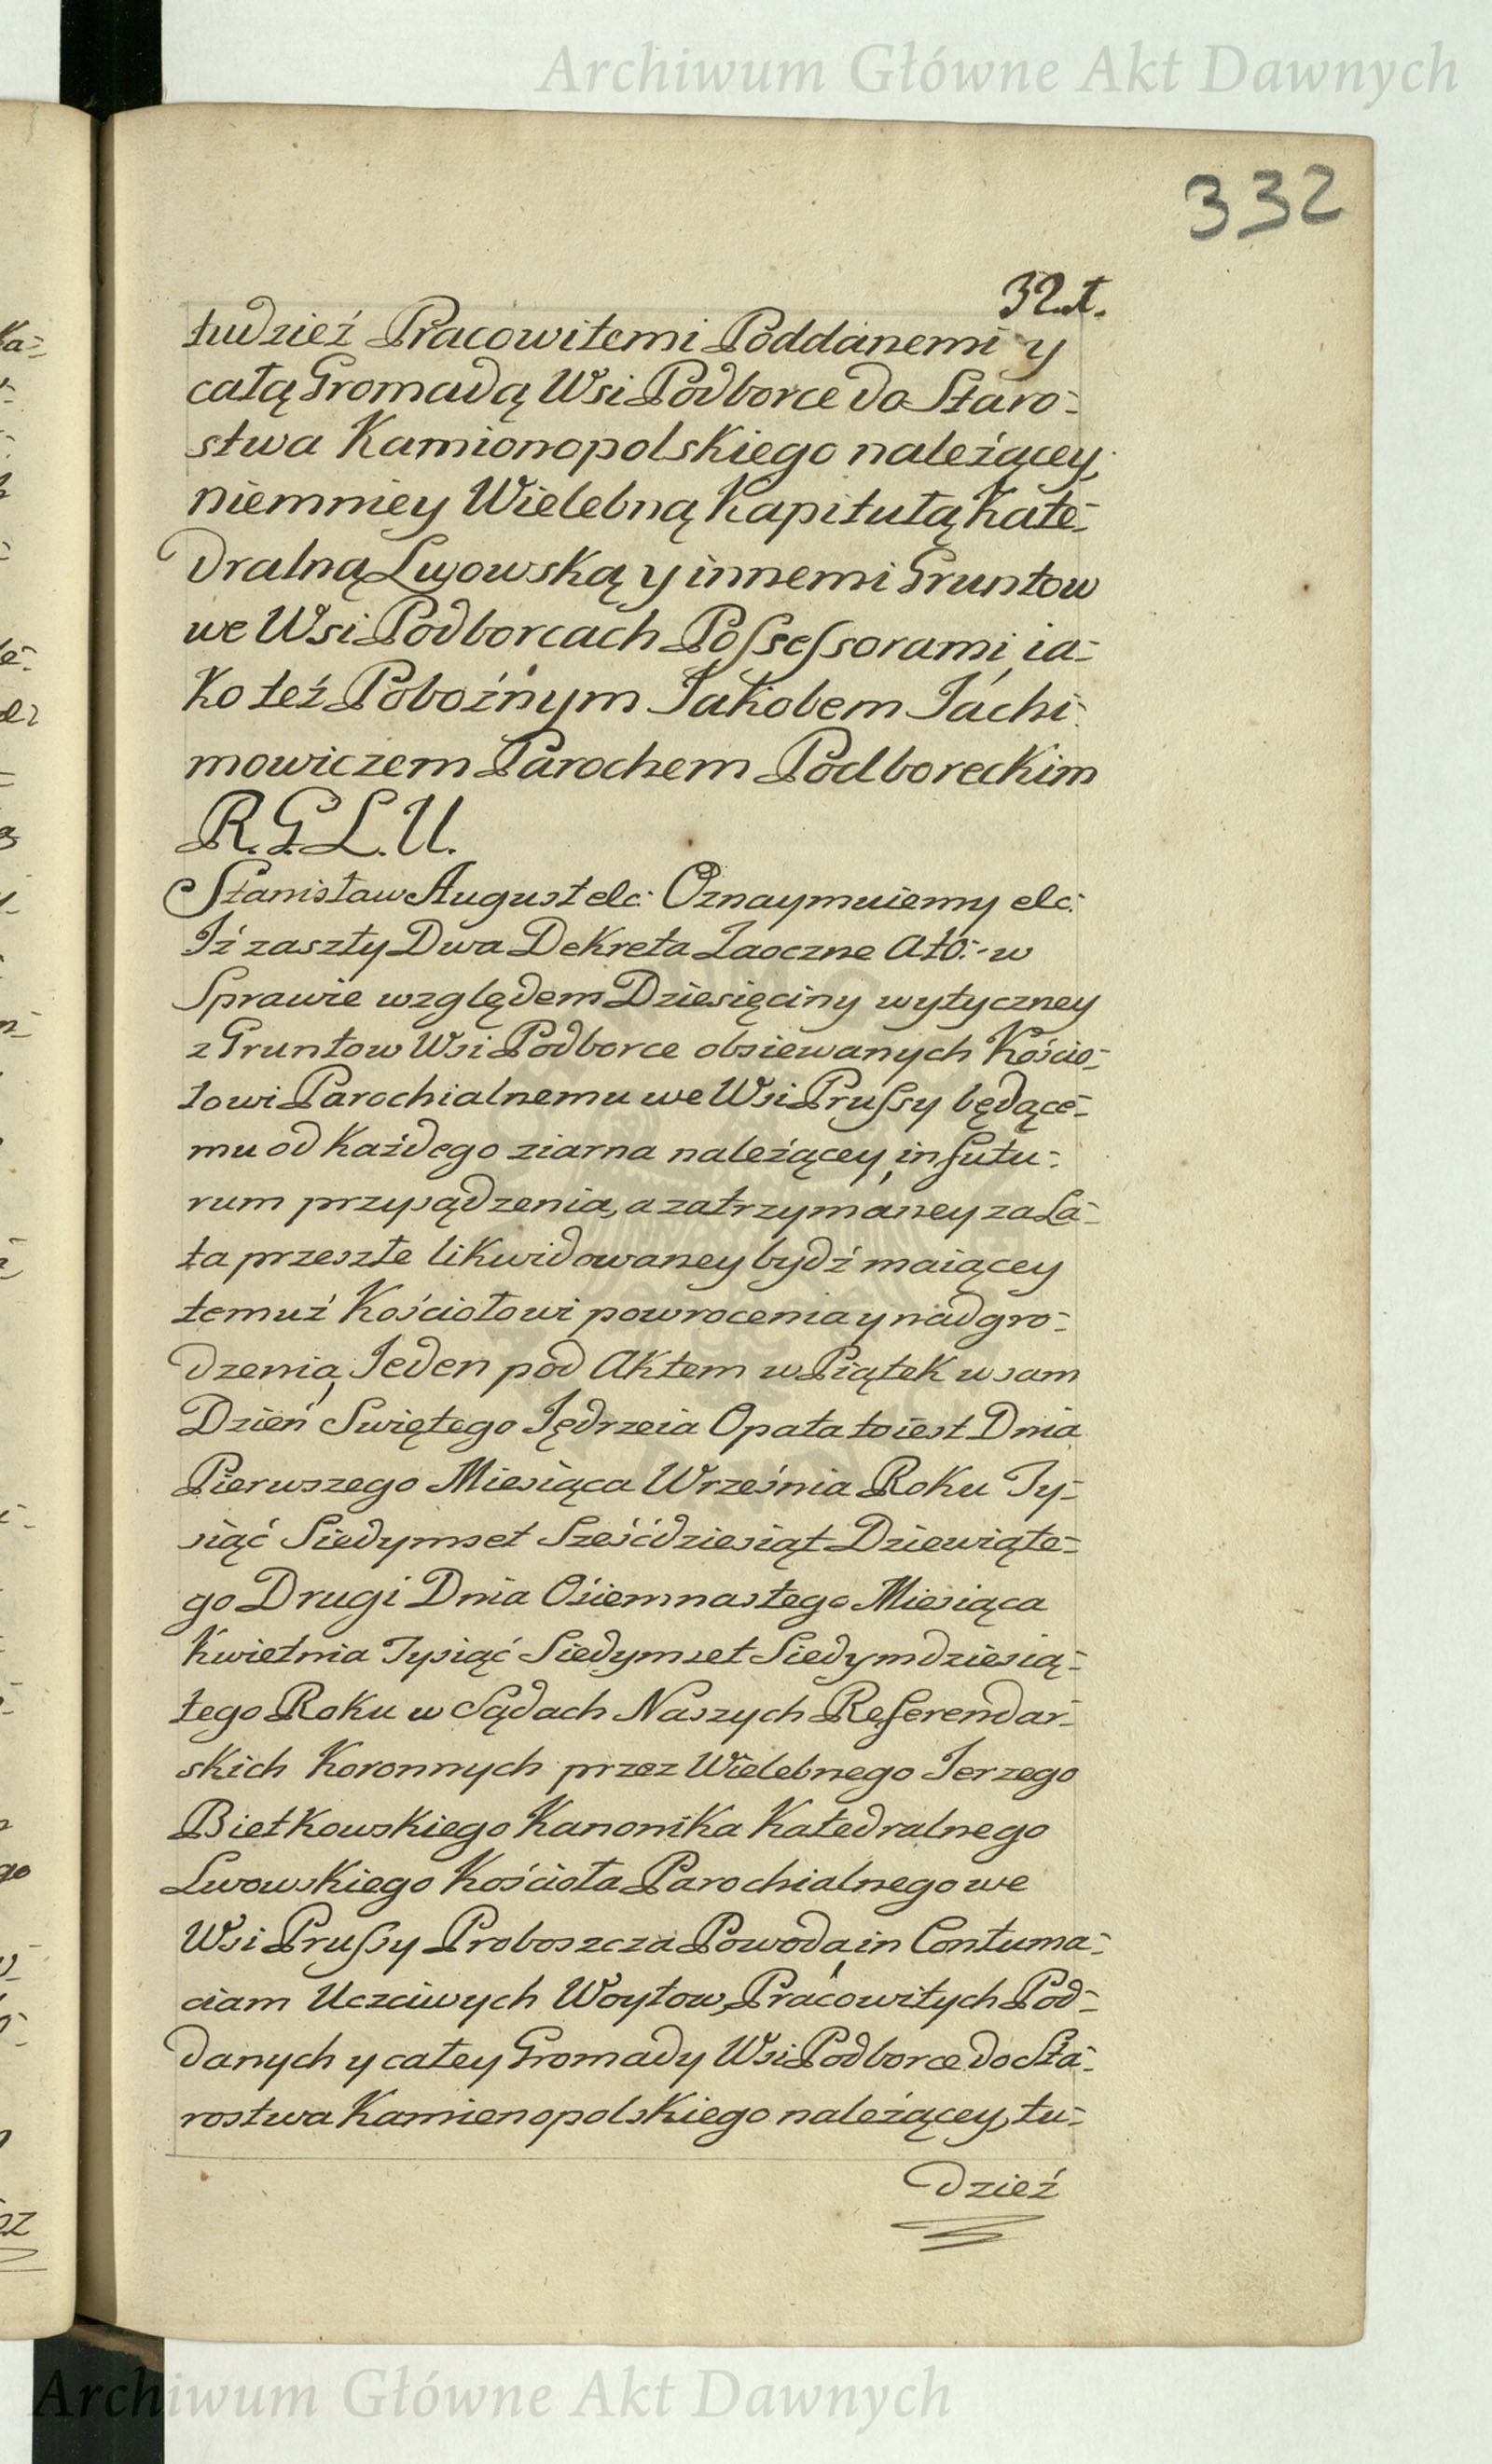 Archiwum Główne Akt Dawnych
332
32.t.
tudzież Pracowitemi Poddanemi y
całą Gromadą Wsi Podborce do Staro-
stwa Kamionopolskiego należącey,
niemniey Wielebną Kapitułą Kate-
dralną Lwowską y innemi Gruntow
we Wsi Podborcach Possessorami ia-
ko też Pobożnym Jakobem Jachi-
mowiczem Parochem Podboreckim
R.G.L.U.
Stanisław August etc: Oznaymuiemy etc:
Iż zaszły Dwa Dekreta Zaoczne w
Sprawie względem Dziesięciny wytyczney
z Gruntow Wsi Podborce obsiewanych Kościo-
łowi Parochialnemu we Wsi Prussy będące-
mu od każdego ziarna należącey, in futu-
rum przysądzenia, a zatrzymaney za La-
ta przeszłe likwidowaney bydź maiącey
temuż Kościołowi powrocenia y nadgro-
dzenia, Jeden pod Aktem w Piątek w sam
Dzień Swiętego Jędrzeia Opata to iest Dnia
Pierwszego Miesiąca Września Roku Ty-
siąć Siedymset Sześćdziesiąt Dziewiąte-
go Drugi Dnia Osiemnastego Miesiąca
Kwietnia Tysiąć Siedymset Siedymdziesią-
tego Roku w Sądach Naszych Referendar-
skich Koronnych przez Wielebnego Jerzego
Biełkowskiego Kanonika Katedralnego
Lwowskiego Kościoła Parochialnego we
Wsi Prussy Proboszcza Powoda, in Contuma-
ciam Uczciwych Woytow, Pracowitych Pod-
danych y całey Gromady Wsi Podborce do Sta-
rostwa Kamienopolskiego należącey, tu-
dzież
Archiwum Główne Akt Dawnych